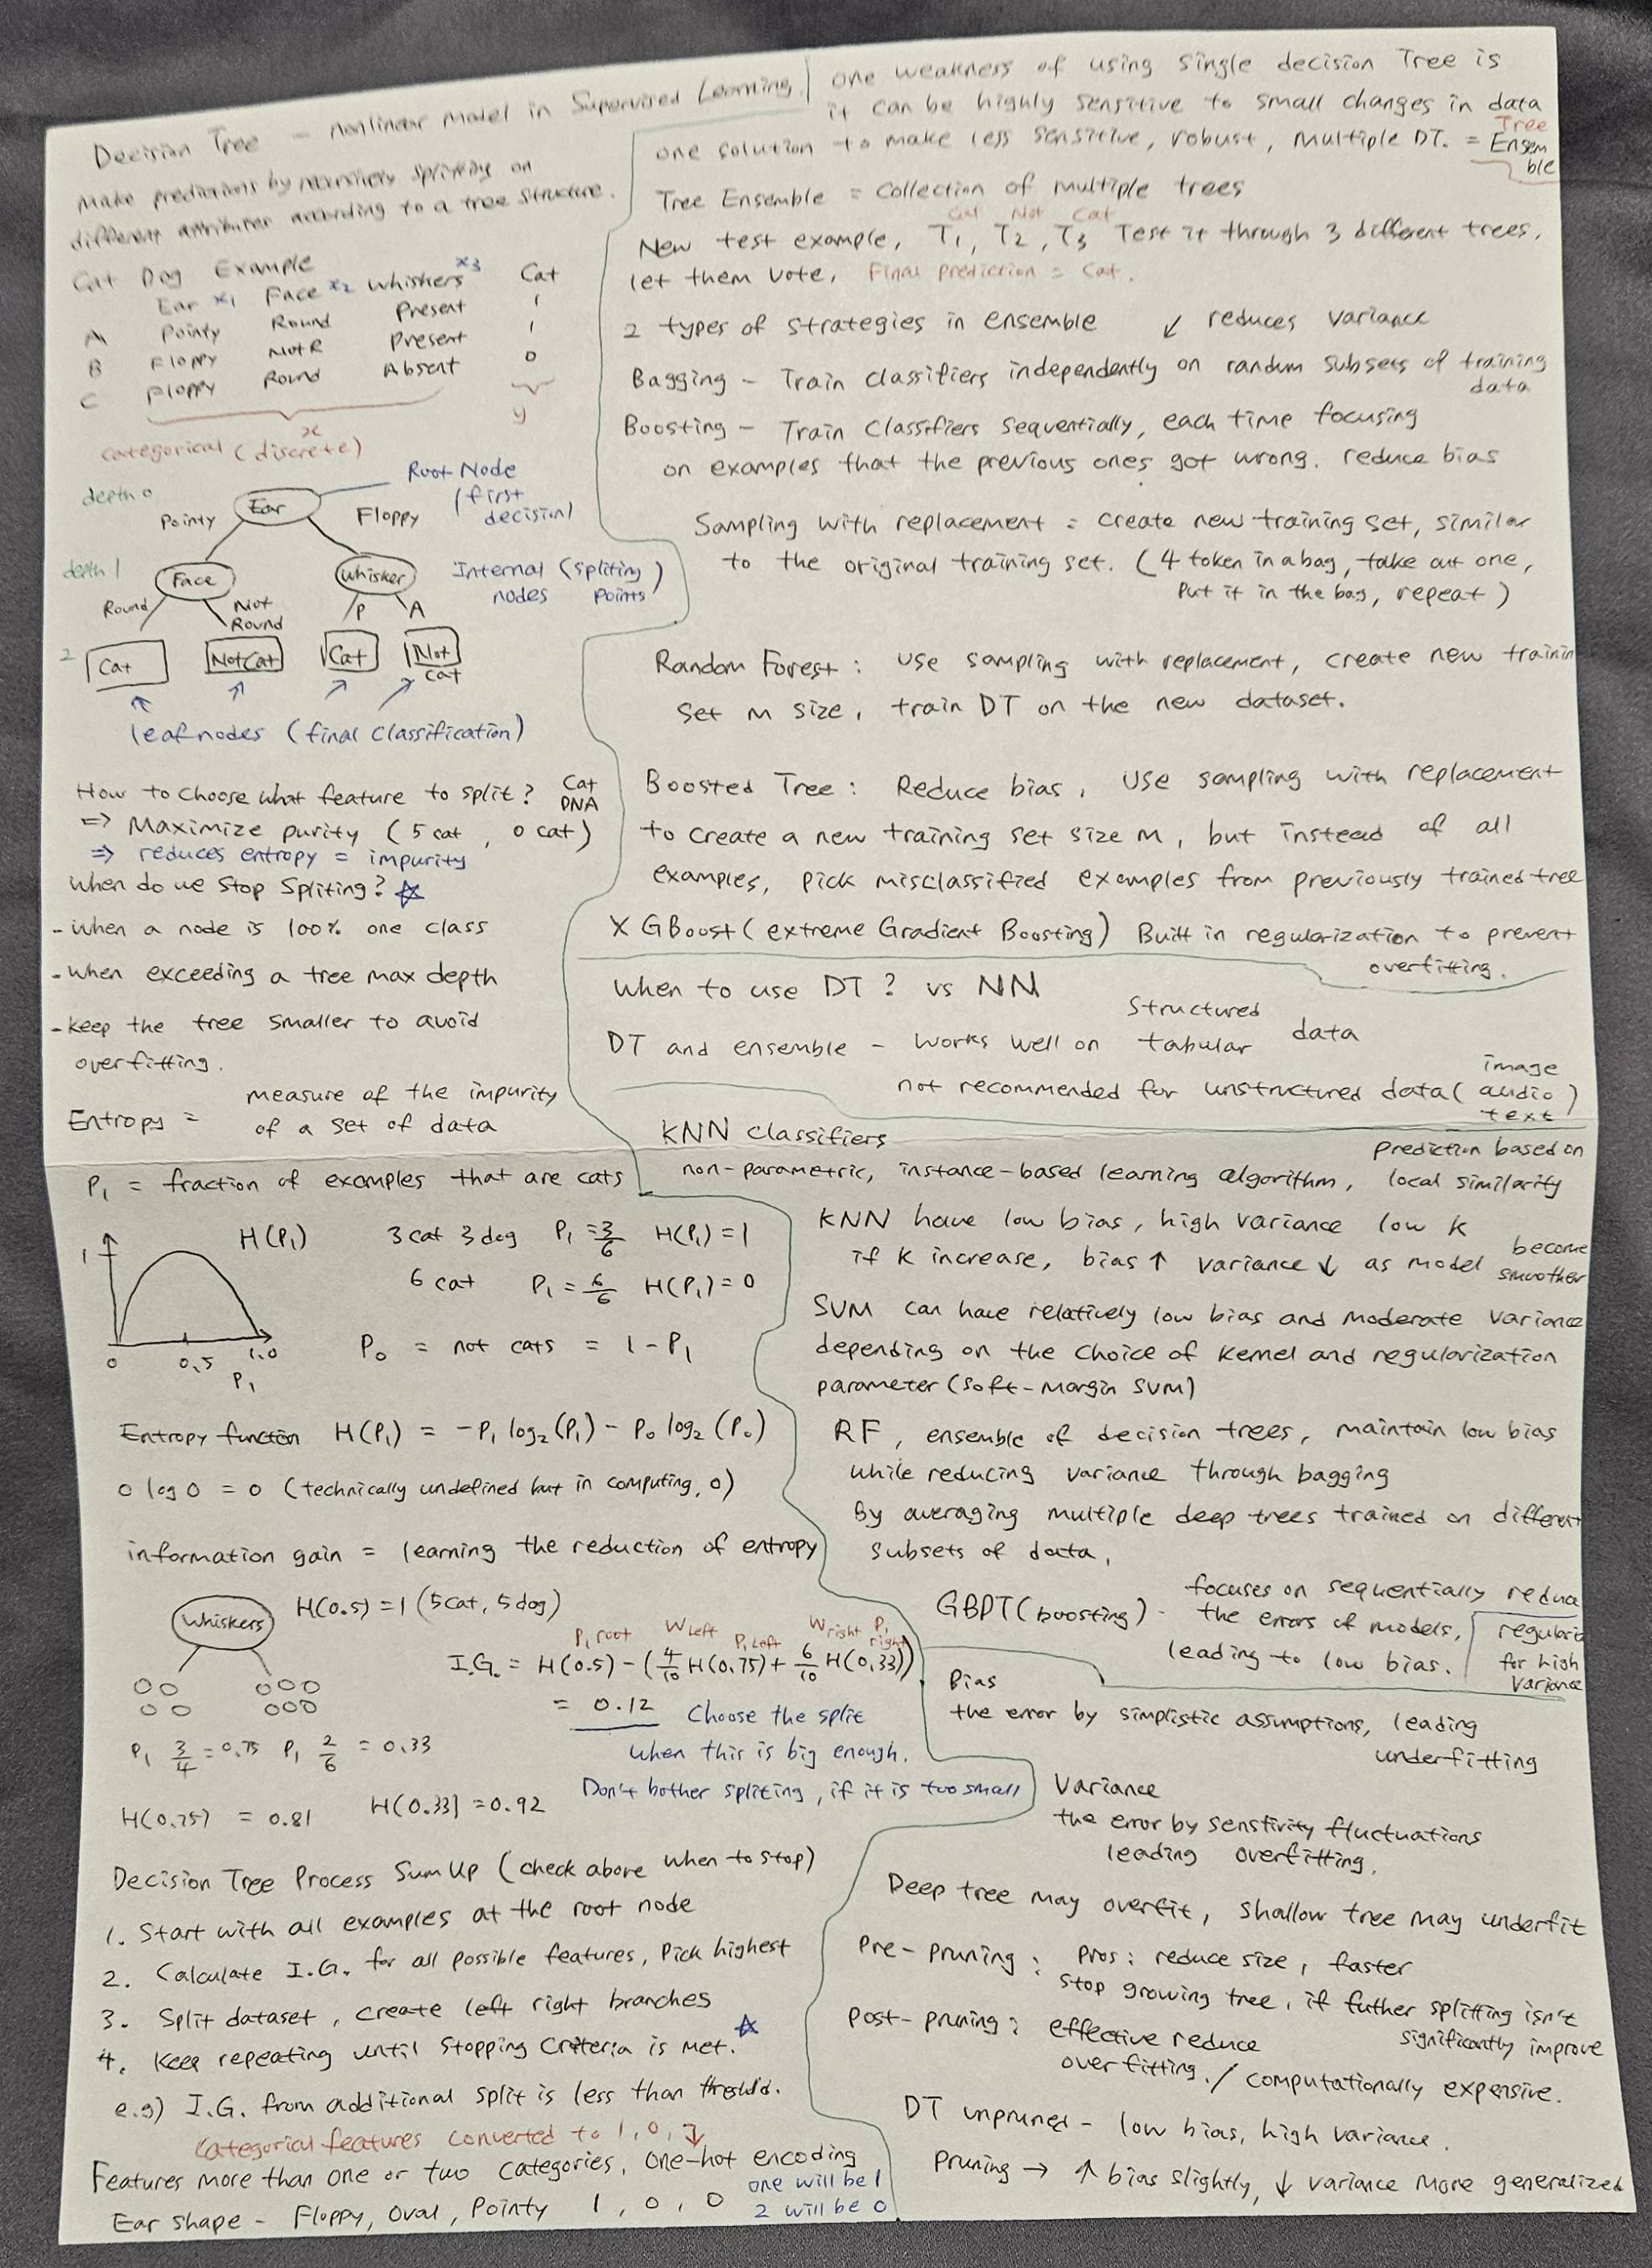 Decision Tree - nonlinear model in Supervised Learning
Make predictions by recursively splitting on
different attributes according to a tree structure.
Cat Dog Example
Ear x1 Face x2 Whiskers x3 Cat
A Pointy Round Present 1
B Floppy Not R Present 1
C Floppy Round Absent 0
x
y
categorical (discrete)
depth 0
Ear
Root Node
(first
decision)
Pointy
Floppy
depth 1
Face
Whisker
Internal (spliting)
nodes points
Round
Not
Round
P
A
2
Cat
Not Cat
Cat
Not
cat
leaf nodes (final classification)
How to choose what feature to split? Cat
DNA
=> Maximize purity (5 cat, 0 cat)
=> reduces entropy = impurity
When do we stop spliting? ☆
- When a node is 100% one class
- When exceeding a tree max depth
- keep the tree smaller to avoid
overfitting.
Entropy = measure of the impurity
of a set of data
P₁ = fraction of examples that are cats
1
H(P₁)
0 0.5 1.0
P₁
3 cat 3 dog P₁ = 3/6 H(P₁) = 1
6 cat P₁ = 6/6 H(P₁) = 0
P₀ = not cats = 1 - P₁
Entropy function H(P₁) = -P₁ log₂(P₁) - P₀ log₂(P₀)
0 log 0 = 0 (technically undefined but in computing, 0)
information gain = learning the reduction of entropy
Whiskers
H(0.5) = 1 (5cat, 5dog)
P₁ root W Left P₁ Left W right P₁ right
I.G. = H(0.5) - (4/10 H(0.75) + 6/10 H(0.33))
= 0.12 Choose the split
when this is big enough.
Don't bother spliting, if it is too small
P₁ 3/4 = 0.75 P₁ 2/6 = 0.33
H(0.75) = 0.81 H(0.33) = 0.92
Decision Tree Process Sum Up (check above when to stop)
1. Start with all examples at the root node
2. Calculate I.G. for all possible features, Pick highest
3. Split dataset, create left right branches
4. Keep repeating until stopping criteria is met. ☆
e.g) I.G. from additional split is less than threshld.
Categorical features converted to 1, 0,
Features more than one or two categories, one-hot encoding
Ear shape - Floppy, Oval, Pointy 1, 0, 0
one will be 1
2 will be 0
one weakness of using single decision Tree is
it can be highly sensitive to small changes in data
one solution to make less sensitive, robust, Multiple DT. = Tree
Ensem
ble
Tree Ensemble = Collection of multiple trees
Cat Not Cat
New test example, T₁, T₂, T₃ Test it through 3 different trees,
let them vote, Final prediction = Cat.
2 types of strategies in ensemble ↙ reduces variance
Bagging - Train classifiers independently on random subsets of training
data
Boosting - Train classifiers sequentially, each time focusing
on examples that the previous ones got wrong. reduce bias
Sampling with replacement = create new training set, similar
to the original training set. (4 token in a bag, take out one,
Put it in the bag, repeat)
Random Forest : use sampling with replacement, create new trainin
set m size, train DT on the new dataset.
Boosted Tree : Reduce bias, Use sampling with replacement
to create a new training set size M, but instead of all
examples, pick misclassified examples from previously trained tree
XGBoost (extreme Gradient Boosting) Built in regularization to prevent
overfitting.
When to use DT? vs NN
DT and ensemble - works well on Structured
tabular data
not recommended for unstructured data (image
audio)
text
KNN classifiers
non-parametric, instance-based learning algorithm, Prediction based on
local similarity
KNN have low bias, high variance low K
if K increase, bias ↑ variance ↓ as model become
smoother
SVM can have relatively low bias and moderate variance
depending on the choice of kernel and regularization
parameter (soft-margin SVM)
RF, ensemble of decision trees, maintain low bias
while reducing variance through bagging
By averaging multiple deep trees trained on different
subsets of data,
GBDT (boosting) - focuses on sequentially reduce
the errors of models,
leading to low bias.
regulariz
for high
Variance
Bias
the error by simplistic assumptions, leading
underfitting
Variance
the error by senstivity fluctuations
leading overfitting.
Deep tree may overfit, shallow tree may underfit
Pre-pruning : Pros: reduce size, faster
stop growing tree, if futher splitting isn't
significantly improve
Post-pruning : effective reduce
overfitting. / computationally expensive.
DT unpruned - low bias, high variance.
Pruning → ↑ bias slightly, ↓ variance more generalized